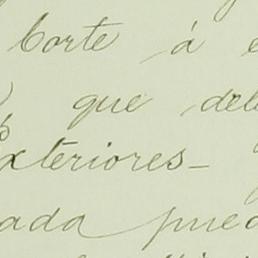 Corte á
que del
xteriores_
ada pued